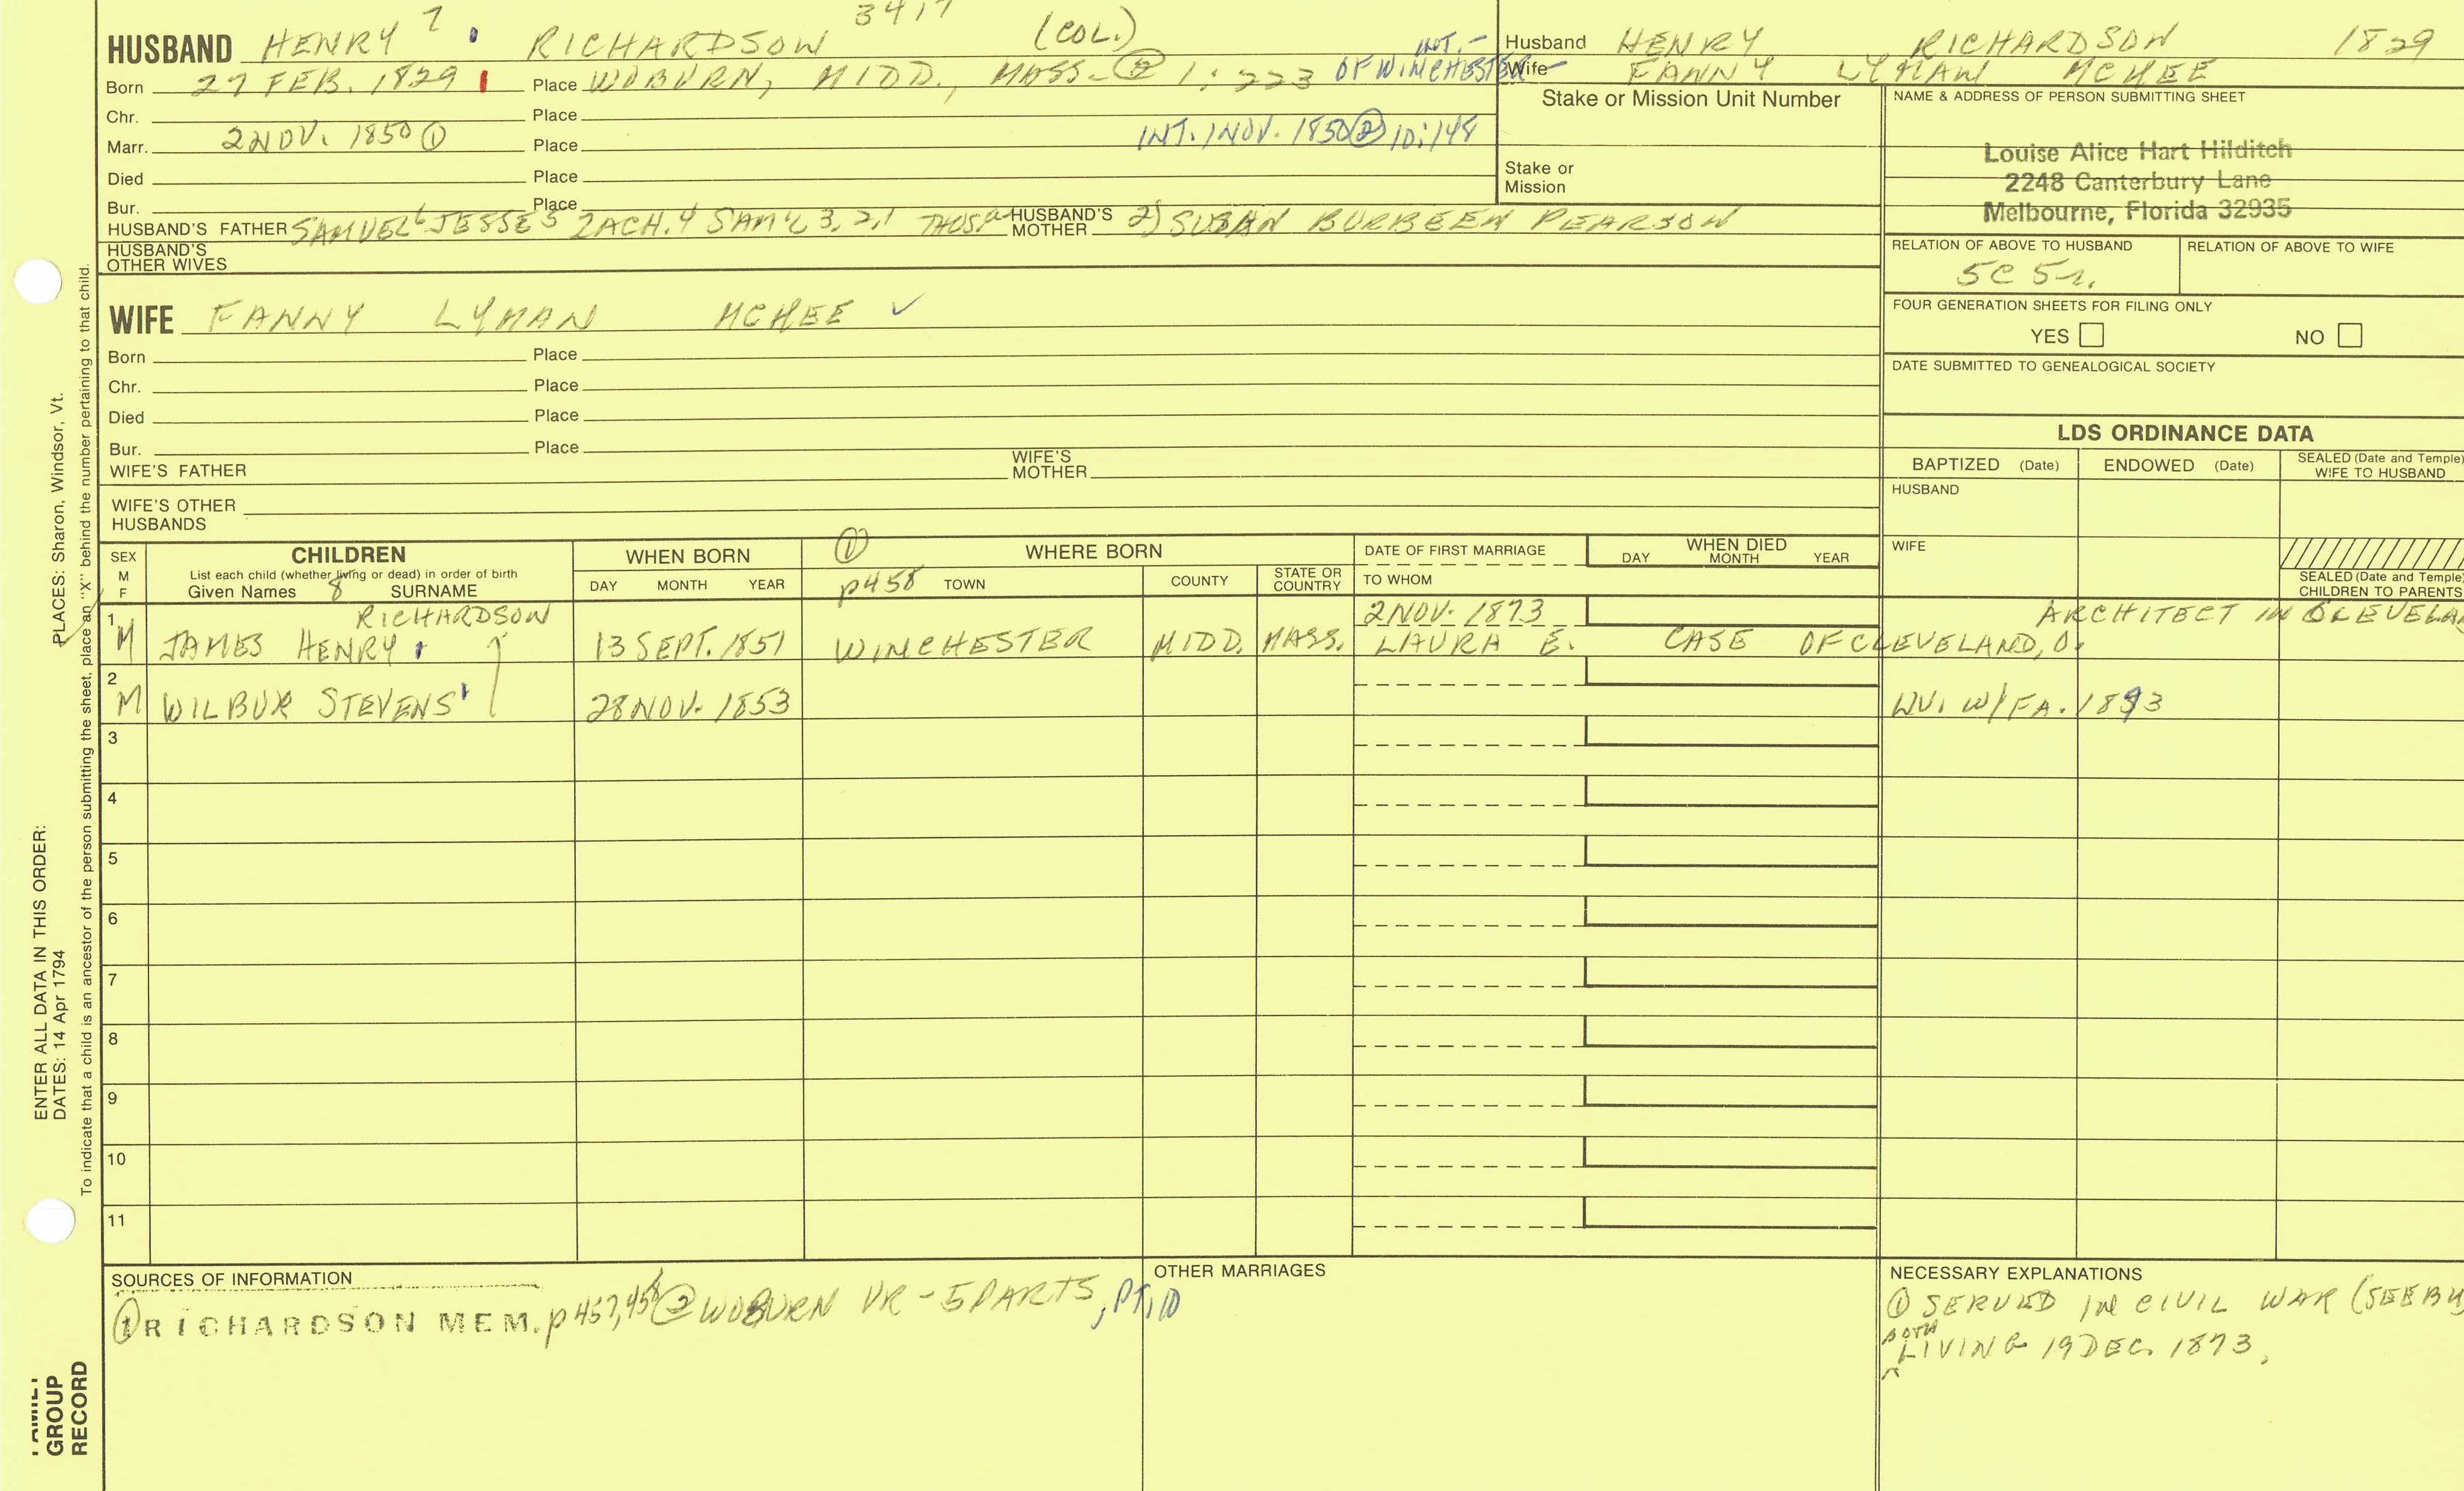 3417
HUSBAND HENRY 7 RICHARDSON (COL.)
Born 27 FEB. 1829 Place WOBURN, MIDD., MASS. ② 1:223 INT.- OF WINCHESTER
Chr. Place
Marr. 2 NOV. 1850 ① Place INT. 1 NOV. 1850 ② 10:148
Died Place
Bur. Place
HUSBAND'S FATHER SAMUEL 6 JESSE 5 ZACH. 4 SAM'L 3, 2, 1 HUSBAND'S MOTHER 2) SUSAN BURBEEN PEARSON
HUSBAND'S OTHER WIVES
WIFE FANNY LYMAN MCHEE ✓
Born Place
Chr. Place
Died Place
Bur. Place
WIFE'S FATHER WIFE'S MOTHER
WIFE'S OTHER HUSBANDS
Husband HENRY RICHARDSON 1829
Wife FANNY LYMAN MCHEE
Stake or Mission Unit Number
Stake or Mission
NAME & ADDRESS OF PERSON SUBMITTING SHEET
Louise Alice Hart Hilditch
2248 Canterbury Lane
Melbourne, Florida 32935
RELATION OF ABOVE TO HUSBAND RELATION OF ABOVE TO WIFE
5C 5r.
FOUR GENERATION SHEETS FOR FILING ONLY
YES NO
DATE SUBMITTED TO GENEALOGICAL SOCIETY
LDS ORDINANCE DATA
BAPTIZED (Date) ENDOWED (Date) SEALED (Date and Temple) WIFE TO HUSBAND
HUSBAND
WIFE
SEALED (Date and Temple) CHILDREN TO PARENTS
SEX M F
CHILDREN
List each child (whether living or dead) in order of birth
Given Names 8 SURNAME
WHEN BORN
DAY MONTH YEAR
① WHERE BORN
p458 TOWN COUNTY STATE OR COUNTRY
DATE OF FIRST MARRIAGE
TO WHOM
WHEN DIED
DAY MONTH YEAR
RICHARDSON 2 NOV. 1873 ARCHITECT IN
1 M JAMES HENRY 13 SEPT. 1851 WINCHESTER MIDD. MASS. LAURA E. CASE OF CLEVELAND, O.
2 M WILBUR STEVENS 28 NOV. 1853 LIV. W/FA. 1893
3
4
5
6
7
8
9
10
11
SOURCES OF INFORMATION
① RICHARDSON MEM. p457,458 ② WOBURN VR - 5 PARTS, PT, 10
OTHER MARRIAGES
NECESSARY EXPLANATIONS
① SERVED IN CIVIL WAR
BOTH
LIVING 19 DEC. 1873.
ENTER ALL DATA IN THIS ORDER:
DATES: 14 Apr 1794 PLACES: Sharon, Windsor, Vt.
To indicate that a child is an ancestor of the person submitting the sheet, place an "X" behind the number pertaining to that child.
GROUP
RECORD